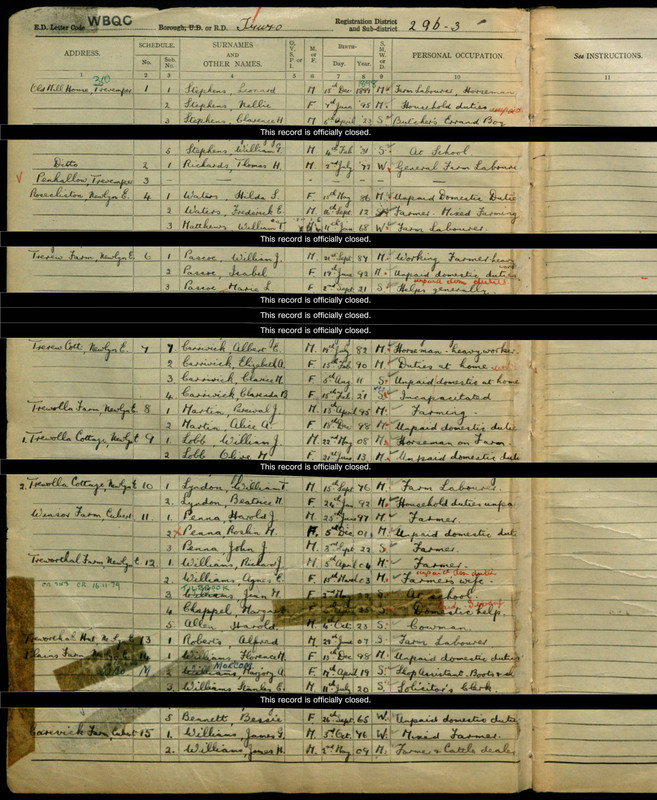 E.D. Letter Code WBQC Borough, U.D. or R.D. Truro Registration District and Sub-district 296-3
ADDRESS. SCHEDULE. SURNAMES AND OTHER NAMES. O. V. S. P. or I. M. or F. BIRTH— S. M. W. or D. PERSONAL OCCUPATION. See INSTRUCTIONS.
No. Sub. No. Day. Year.
1 2 3 4 5 6 7 8 9 10 11
Old Mill House, Trevemper 1 1 Stephens, Leonard M 1899 M Farm Labourer, Horseman
2 Stephens, Nellie F 4th June '95 M Household duties unpaid
3 Stephens, Clarence H M 6th April '23 S Butcher's Errand Boy
This record is officially closed.
5 Stephens, William M 4th Feb '31 S At School.
Ditto 2 1 Richards, Thomas H. M 2nd July W General Farm Labourer
Penhallow, Trevemper 3 — — — — — —
Rosecliston, Newlyn E. 4 1 Waters, Hilda S. F May 86 M Unpaid Domestic Duties
2 Waters, Frederick C. M Sept. 12 Farmer. Mixed Farming
3 Matthews, William T M 11th Jan 68 W Farm Labourer.
This record is officially closed.
Trerew Farm, Newlyn E. 6 1 Pascoe William J. M 21st Sept 87 M Working Farmer heavy work
2 Pascoe, Isabel F 19th June 92 M Unpaid domestic duties
unpaid dom duties
3 Pascoe Marie L F 2nd Sept. 21 S Helps generally
This record is officially closed.
This record is officially closed.
This record is officially closed.
Trerew Cott, Newlyn E. 7 1 Carrivick Albert E. M. July 82 M Horseman - heavy worker.
2 Carrivick, Elizabeth A. F 13th Feb 90 M Duties at home
3 Carrivick, Clarice M. F 5th Aug 11 S Unpaid domestic at home
4 Carrivick, Clarenda B F 15th Feb. 21 S Incapacitated
Trewolla Farm, Newlyn E. 8 1 Martin, Percival J M. 13th April 95 M Farming.
2 Martin Alice A. F 13th Dec 98 M Unpaid domestic duties
1. Trewolla Cottage, Newlyn E 9 1 Lobb William J. M 22nd May 08 M Horseman on Farm.
2 Lobb Olive M F 21st June 13 M Unpaid domestic duties
This record is officially closed.
2. Trewolla Cottage, Newlyn E 10 1 Lyndon, William T M 15th Sept 76 M Farm Labourer.
2 Lyndon, Beatrice M. F 24th Jan 92 M Household duties unpaid
Winsor Farm, Cubert. 11 1 Penna, Harold J M 25th Jan 97 M Farmer
2 Penna Rosha M. F. 5th Dec 01 M Unpaid domestic duties
3 Penna John J M 3rd Sept 22 S Farmer.
Treworthal Farm, Newlyn E. 12 1 Williams, Richard J. M 5th April 04 M Farmer.
unpaid dom duties
2 Williams, Agnes E. F 18th March 03 M Farmer's wife.
TILBROOK
3 Williams, Jean M F 2nd May S At school.
4 Chappel, Margaret F S Domestic help.
5 Allen, Harold M 4th Oct. 23 S Cowman.
13 1 Roberts Alfred M 20th June 07 S Farm Labourer
Plains Farm 14 1 Williams, Florence M. F 13th Dec 98 M Unpaid domestic duties
2 Williams, Marjory A F 17th April 19 S Shop Assistant. Boots &
3 Williams, Stanley E. M 11th July 20 S Solicitor's Clerk.
This record is officially closed.
5 Bennett, Bessie F 26th Sept. 65 W Unpaid domestic duties
Carevick Farm, Cubert 15 1. Williams, James T. M. 5th Oct. 76 W Mixed Farmer.
2. Williams, James H. M. 2nd May 09 M Farmer & Cattle dealer